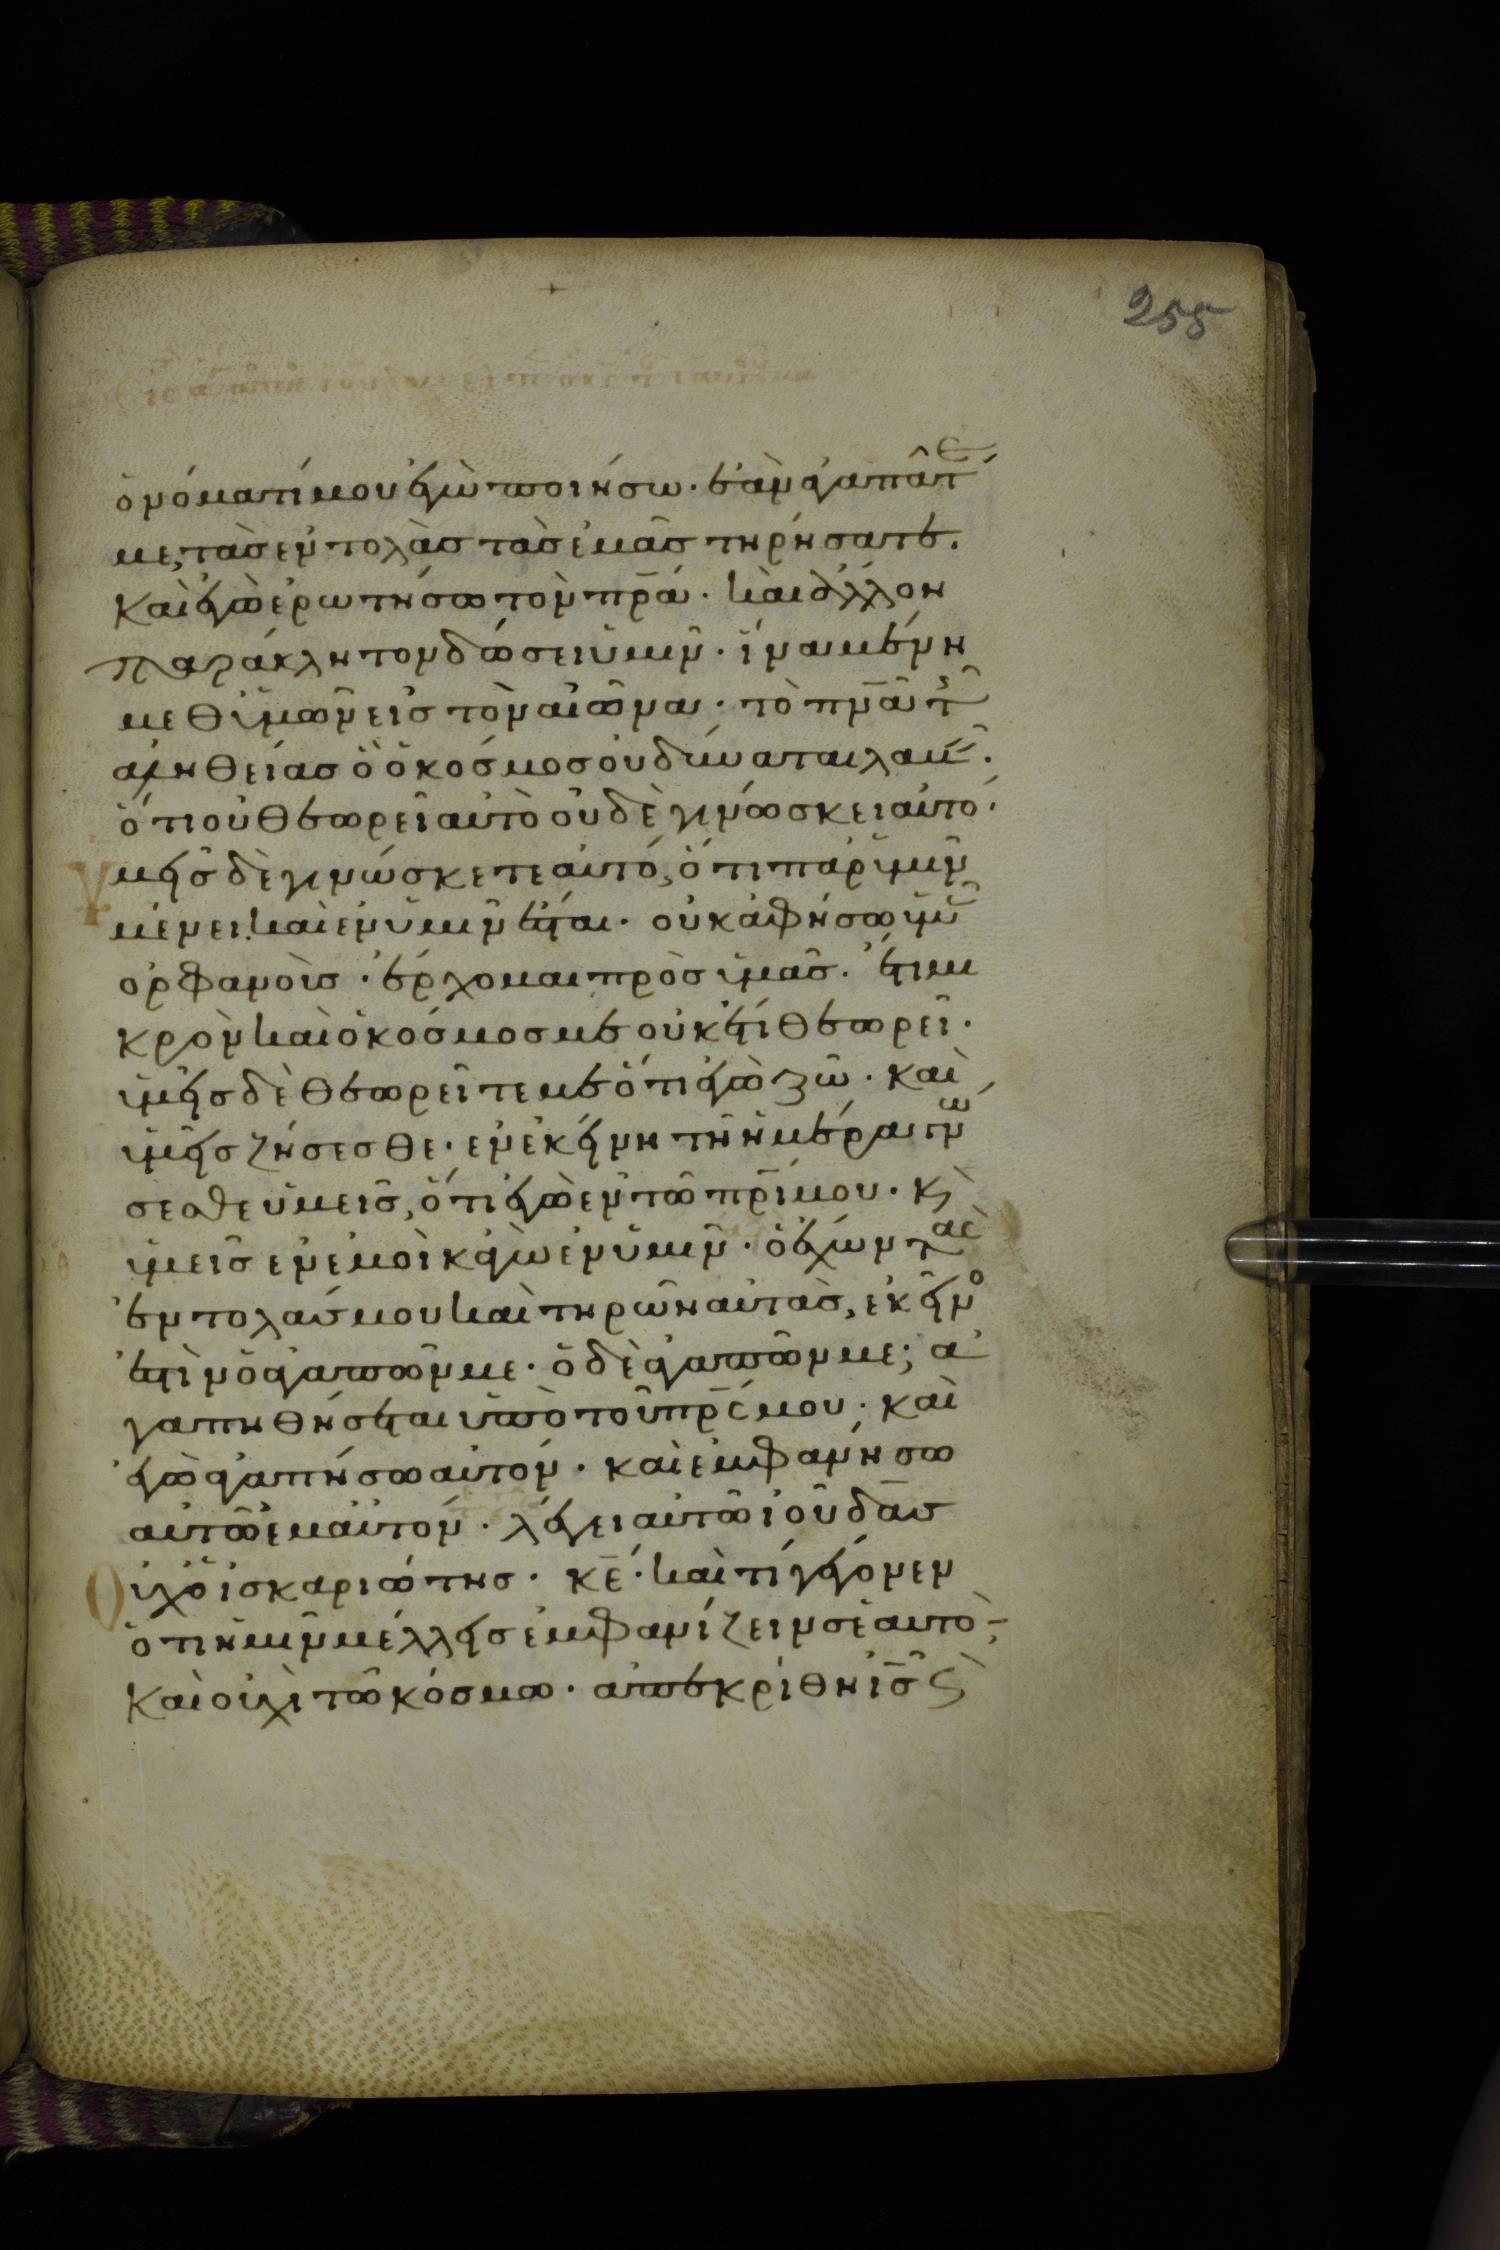 255
ὀνόματί μου ἐγὼ ποιήσω· ἐὰν ἀγαπᾶτέ
με, τὰσ ἐντολὰσ τὰσ ἐμὰσ τηρήσατε.
Καὶ ἐγὼ ἐρωτήσω τὸν πρ̅α· καὶ ἄλλον
παράκλητον δώσει ὑμῖν· ἵνα μένη
μεθ ὑμῶν εἰσ τὸν αἰῶνα· τὸ πν̅α τῆσ
ἀληθείασ ὃ ὁ κόσμοσ οὐ δύναται λαβεῖν.
ὅτι οὐ θεωρεῖ αὐτὸ οὐδὲ γινώσκει αὐτό·
Ὑμεῖσ δὲ γινώσκετε αὐτό, ὅτι παρ ὑμῖν
μένει καὶ ἐν ὑμῖν ἔσται· οὐκ ἀφήσω ὑμᾶσ
ὀρφανοὺσ· ἔρχομαι πρὸσ ὑμᾶσ. ἔτι μι
κρὸν καὶ ὁ κόσμοσ με οὐκέτι θεωρεῖ·
ὑμεῖσ δὲ θεωρεῖτε με ὅτι ἐγὼ ζῶ· καὶ
ὑμεῖσ ζήσεσθε· ἐν ἐκείνη τῆ ἡμέρα γνώ
σεσθε ὑμεῖσ, ὅτι ἐγὼ ἐν τῶ πρ̅ί μου· κ̀
ὑμεῖσ ἐν ἐμοὶ κἀγὼ ἐν ὑμῖν· ὁ ἔχων τὰσ
ἐντολάσ μου καὶ τηρῶν αὐτὰσ, ἐκεῖνόσ
ἐστὶν ὁ ἀγαπῶν με· ὁ δὲ ἀγαπῶν με; ἀ
γαπηθήσεται ὑπὸ τοῦ πρ̅ς μου· καὶ
ἐγὼ ἀγαπήσω αὐτόν· καὶ ἐμφανήσω
αὐτῶ ἐμαὐτόν· λέγει αὐτῶ ἰούδασ
Οὐχ ὁ ἰσκαριώτησ· κ̅ε· καὶ τί γέγονεν
ὅτι ἡμῖν μέλλεισ ἐμφανίζειν σεαυτὸ-
Καὶ οὐχὶ τῶ κόσμω· ἀπεκρίθη ι̅σ ς̀